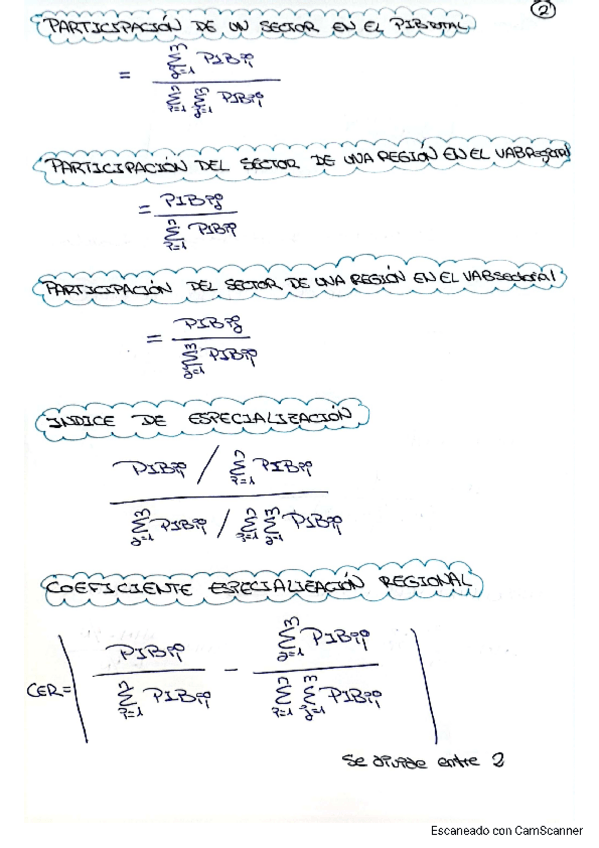 ②
PARTICIPACIÓN DE UN SECTOR EN EL PIBTOTAL
= Σ(j=1, m) PIBij / Σ(i=1, n) Σ(j=1, m) PIBij
PARTICIPACIÓN DEL SECTOR DE UNA REGIÓN EN EL VABRegional
= PIBij / Σ(i=1, n) PIBij
PARTICIPACIÓN DEL SECTOR DE UNA REGIÓN EN EL VABsectorial
= PIBij / Σ(j=1, m) PIBij
INDICE DE ESPECIALIZACIÓN
PIBij / Σ(i=1, n) PIBij
Σ(j=1, m) PIBij / Σ(i=1, n) Σ(j=1, m) PIBij
COEFICIENTE ESPECIALIZACIÓN REGIONAL
CER = | PIBij / Σ(i=1, n) PIBij − Σ(j=1, m) PIBij / Σ(i=1, n) Σ(j=1, m) PIBij |
se divide entre 2
Escaneado con CamScanner